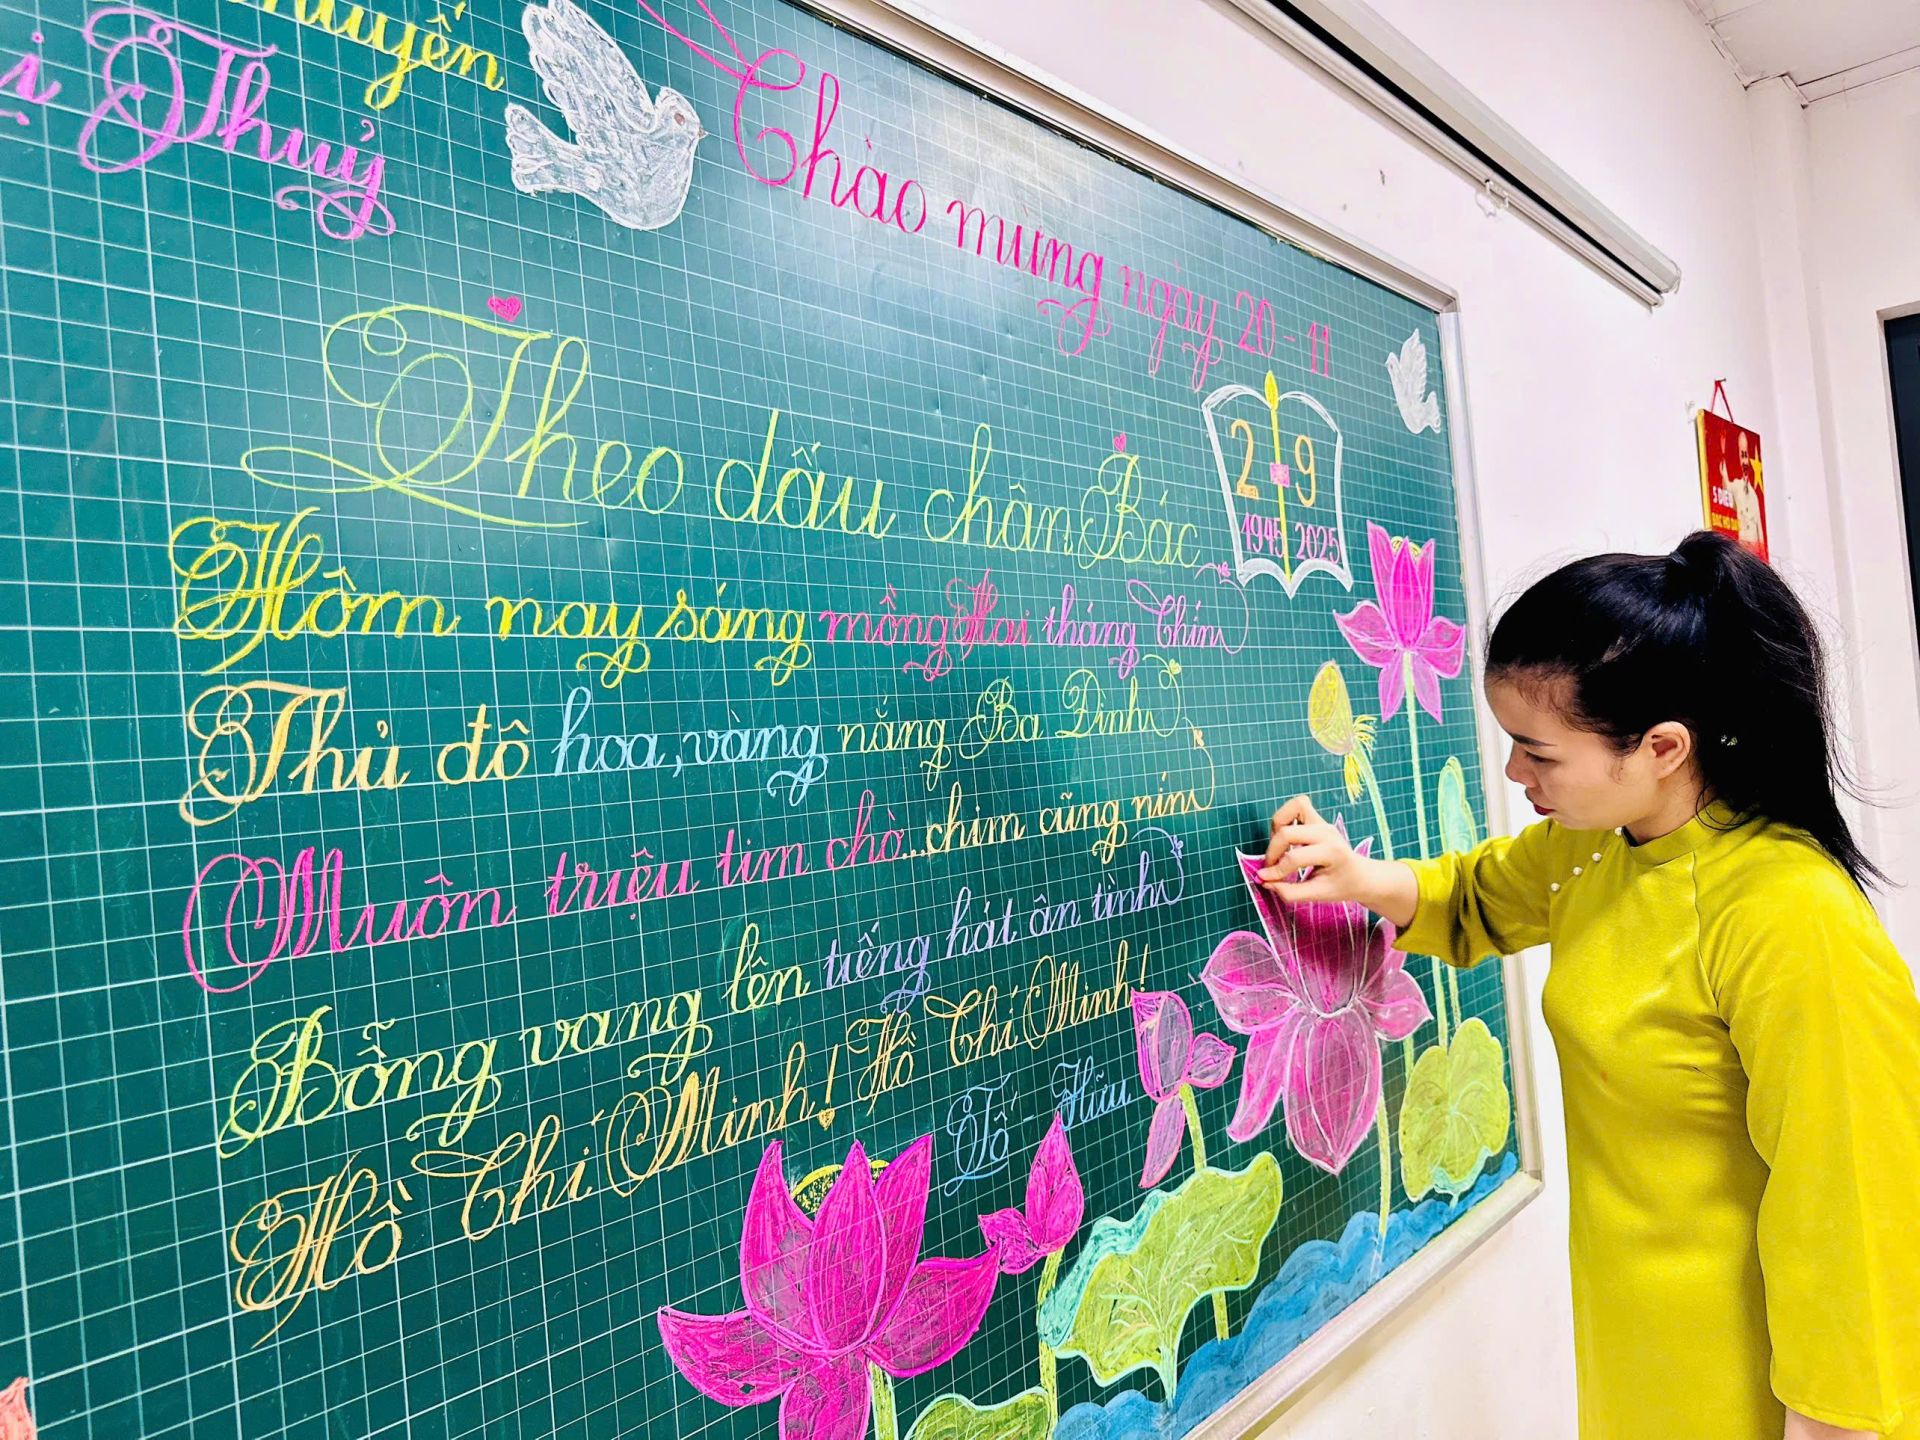 huyến
ị Thuỷ
Chào mừng ngày 20-11
Theo dấu chân Bác
2 9
1945 2025
Hôm nay sáng mồng Hai tháng Chín
Thủ đô hoa, vàng nắng Ba Đình
Muôn triệu tim chờ...chim cũng nín
Bỗng vang lên tiếng hát ân tình
Hồ Chí Minh! Hồ Chí Minh!
Tố - Hữu
5 ĐIỀU
BÁC HỒ DẠY